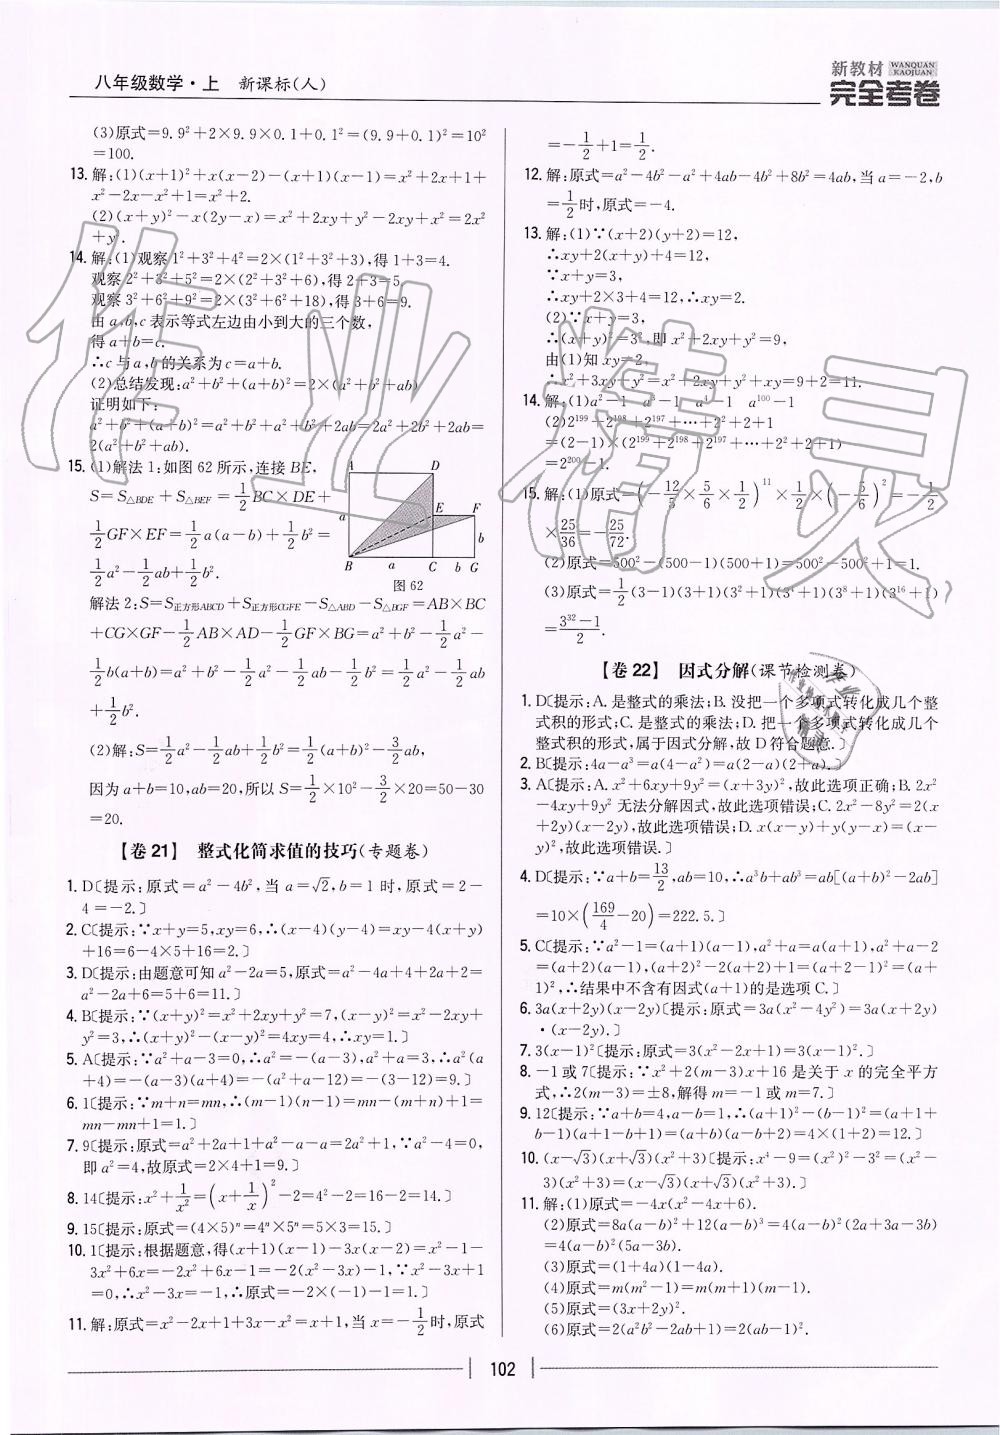 八年级数学·上 新课标(人)
新教材 WANQUAN KAOJUAN
完全考卷
(3)原式=9.9²+2×9.9×0.1+0.1²=(9.9+0.1)²=10²
=100.
13. 解:(1)(x+1)²+x(x-2)-(x+1)(x-1)=x²+2x+1+
x²-2x-x²+1=x²+2.
(2)(x+y)²-x(2y-x)=x²+2xy+y²-2xy+x²=2x²
+y².
14. 解:(1)观察1²+3²+4²=2×(1²+3²+3),得1+3=4.
观察2²+3²+5²=2×(2²+3²+6),得2+3=5.
观察3²+6²+9²=2×(3²+6²+18),得3+6=9.
由a,b,c表示等式左边由小到大的三个数,
得a+b=c.
∴c与a,b的关系为c=a+b.
(2)总结发现:a²+b²+(a+b)²=2×(a²+b²+ab)
证明如下:
a²+b²+(a+b)²=a²+b²+a²+b²+2ab=2a²+2b²+2ab=
2(a²+b²+ab).
15. (1)解法1:如图62所示,连接BE,
S=S△BDE+S△BEF=1/2BC×DE+
1/2GF×EF=1/2a(a-b)+1/2b²=
1/2a²-1/2ab+1/2b².
A D
a E F
b
B a C b G
图62
解法2:S=S正方形ABCD+S正方形CGFE-S△ABD-S△BGF=AB×BC
+CG×GF-1/2AB×AD-1/2GF×BG=a²+b²-1/2a²-
1/2b(a+b)=a²+b²-1/2a²-1/2ab-1/2b²=1/2a²-1/2ab
+1/2b².
(2)解:S=1/2a²-1/2ab+1/2b²=1/2(a+b)²-3/2ab,
因为a+b=10,ab=20,所以S=1/2×10²-3/2×20=50-30
=20.
【卷21】 整式化简求值的技巧(专题卷)
1. D〔提示:原式=a²-4b²,当a=√2,b=1时,原式=2-
4=-2.〕
2. C〔提示:∵x+y=5,xy=6,∴(x-4)(y-4)=xy-4(x+y)
+16=6-4×5+16=2.〕
3. D〔提示:由题意可知a²-2a=5,原式=a²-4a+4+2a+2=
a²-2a+6=5+6=11.〕
4. B〔提示:∵(x+y)²=x²+2xy+y²=7,(x-y)²=x²-2xy+
y²=3,∴(x+y)²-(x-y)²=4xy=4,∴xy=1.〕
5. A〔提示:∵a²+a-3=0,∴a²=-(a-3),a²+a=3,∴a²(a
+4)=-(a-3)(a+4)=-(a²+a-12)=-(3-12)=9.〕
6. 1〔提示:∵m+n=mn,∴(m-1)(n-1)=mn-(m+n)+1=
mn-mn+1=1.〕
7. 9〔提示:原式=a²+2a+1+a²-a-a=2a²+1,∵a²-4=0,
即a²=4,故原式=2×4+1=9.〕
8. 14〔提示:x²+1/x²=(x+1/x)²-2=4²-2=16-2=14.〕
9. 15〔提示:原式=(4×5)ⁿ=4ⁿ×5ⁿ=5×3=15.〕
10. 1〔提示:根据题意,得(x+1)(x-1)-3x(x-2)=x²-1-
3x²+6x=-2x²+6x-1=-2(x²-3x)-1,∵x²-3x+1
=0,∴x²-3x=-1,∴原式=-2×(-1)-1=1.〕
11. 解:原式=x²-2x+1+3x-x²=x+1,当x=-1/2时,原式
=-1/2+1=1/2.
12. 解:原式=a²-4b²-a²+4ab-4b²+8b²=4ab,当a=-2,b
=1/2时,原式=-4.
13. 解:(1)∵(x+2)(y+2)=12,
∴xy+2(x+y)+4=12,
∵x+y=3,
∴xy+2×3+4=12,∴xy=2.
(2)∵x+y=3,
∴(x+y)²=3²,即x²+2xy+y²=9,
由(1)知xy=2,
∴x²+3xy+y²=x²+2xy+y²+xy=9+2=11.
14. 解:(1)a²-1 a³-1 a⁴-1 a¹⁰⁰-1
(2)2¹⁹⁹+2¹⁹⁸+2¹⁹⁷+…+2²+2+1
=(2-1)×(2¹⁹⁹+2¹⁹⁸+2¹⁹⁷+…+2²+2+1)
=2²⁰⁰-1.
15. 解:(1)原式=(-12/5×5/6×1/2)¹¹×1/2×(-5/6)²=-1/2
×25/36=-25/72.
(2)原式=500²-(500-1)(500+1)=500²-500²+1=1.
(3)原式=1/2(3-1)(3+1)(3²+1)(3⁴+1)(3⁸+1)(3¹⁶+1)
=(3³²-1)/2.
【卷22】 因式分解(课节检测卷)
1. D〔提示:A.是整式的乘法;B.没把一个多项式转化成几个整
式积的形式;C.是整式的乘法;D.把一个多项式转化成几个
整式积的形式,属于因式分解,故D符合题意.〕
2. B〔提示:4a-a³=a(4-a²)=a(2-a)(2+a).〕
3. A〔提示:A.x²+6xy+9y²=(x+3y)²,故此选项正确;B.2x²
-4xy+9y²无法分解因式,故此选项错误;C.2x²-8y²=2(x
+2y)(x-2y),故此选项错误;D.x(x-y)+y(y-x)=(x-
y)²,故此选项错误.〕
4. D〔提示:∵a+b=13/2,ab=10,∴a³b+ab³=ab[(a+b)²-2ab]
=10×(169/4-20)=222.5.〕
5. C〔提示:∵a²-1=(a+1)(a-1),a²+a=a(a+1),a²+a-2
=(a+2)(a-1),(a+2)²-2(a+2)+1=(a+2-1)²=(a+
1)²,∴结果中不含有因式(a+1)的是选项C.〕
6. 3a(x+2y)(x-2y)〔提示:原式=3a(x²-4y²)=3a(x+2y)
·(x-2y).〕
7. 3(x-1)²〔提示:原式=3(x²-2x+1)=3(x-1)².〕
8. -1或7〔提示:∵x²+2(m-3)x+16是关于x的完全平方
式,∴2(m-3)=±8,解得m=-1或m=7.〕
9. 12〔提示:∵a+b=4,a-b=1,∴(a+1)²-(b-1)²=(a+1+
b-1)(a+1-b+1)=(a+b)(a-b+2)=4×(1+2)=12.〕
10. (x-√3)(x+√3)(x²+3)〔提示:x⁴-9=(x²)²-3²=(x²-
3)(x²+3)=(x-√3)(x+√3)(x²+3).〕
11. 解:(1)原式=-4x(x²-4x+6).
(2)原式=8a(a-b)²+12(a-b)³=4(a-b)²(2a+3a-3b)
=4(a-b)²(5a-3b).
(3)原式=(1+4a)(1-4a).
(4)原式=m(m²-1)=m(m+1)(m-1).
(5)原式=(3x+2y)².
(6)原式=2(a²b²-2ab+1)=2(ab-1)².
102
作业精灵